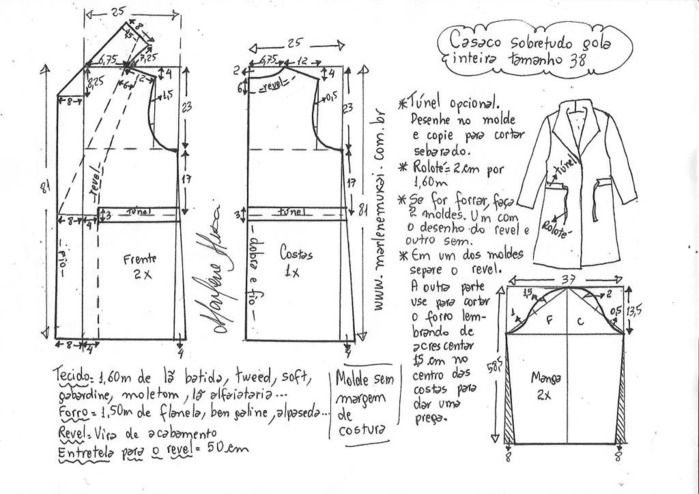 25
8
1,5
6,75
7,25
12
6
4
8
8,25
1,5
23
81
revel
17
8
4
3
túnel
fio
Frente
2x
8
4
4
25
2
6,75
12
4
6
revel
0,5
23
17
3
túnel
81
dobra e fio
Costas
1x
4
Marlene Mukai
www.marlenemukai.com.br
Casaco sobretudo gola
inteira tamanho 38
* Túnel opcional.
Desenhe no molde
e copie para cortar
sebarado.
* Rolotê = 2cm por
1,60m
* Se for forrar, faça
2 moldes. Um com
o desenho do revel e
outro sem.
* Em um dos moldes
separe o revel.
A outra parte
use para cortar
o forro lem-
brando de
acrescentar
15 cm no
centro das
costas para
dar uma
prega.
túnel
Rolotê
37
1,5
2
1
F
C
0,5
13,5
58,5
Manga
2x
8
8
Tecido = 1,60m de lã batida, tweed, soft,
gabardine, moletom, lã alfaiataria...
Forro = 1,50m de flanela, ben galine, alpaseda...
Revel = Vira de acabamento
Entretela para o revel = 50cm
Molde sem
margem
de
costura